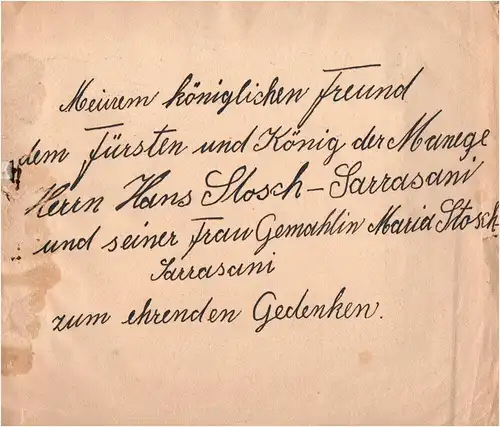 Meinem königlichen Freund
dem Fürsten und König der Manege
Herrn Hans Stosch-Sarrasani
und seiner Frau Gemahlin Maria Stosch-
Sarrasani
zum ehrenden Gedenken.